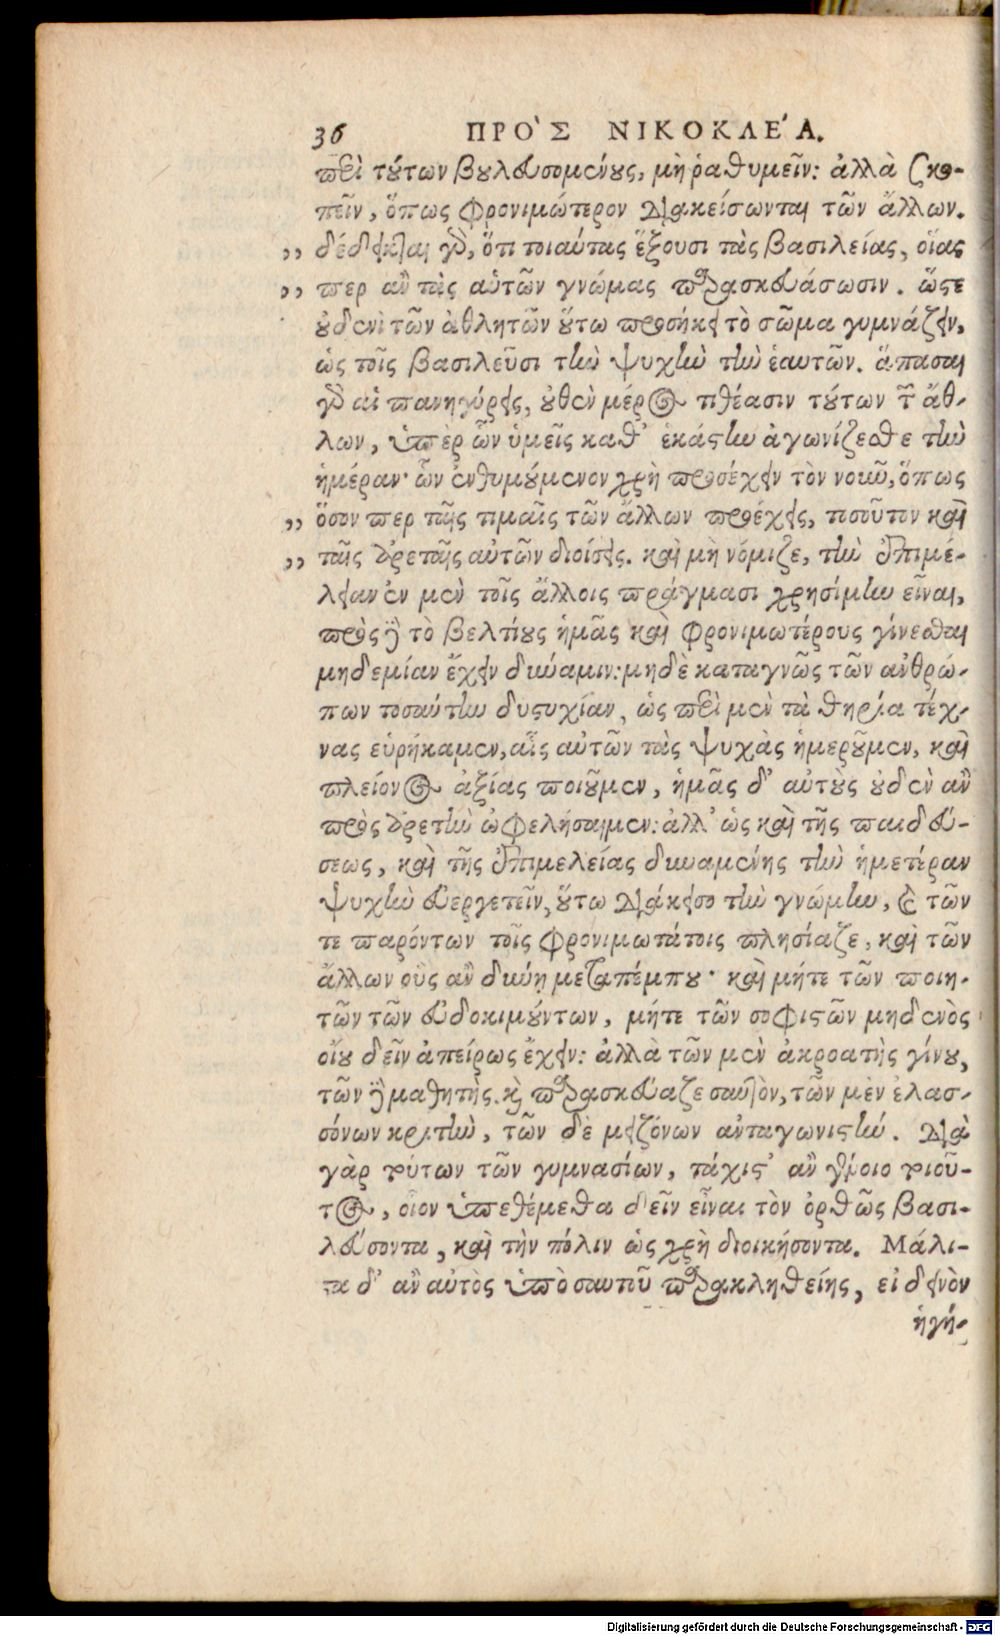 36 ΠΡΟ`Σ ΝΙΚΟΚΛΕ´Α.
περὶ τούτων βουλευσομένους, μὴ ῥαθυμεῖν: ἀλλὰ σκο-
πεῖν, ὅπως φρονιμώτερον διακείσωνται τῶν ἄλλων.
,, δέδεικται γὰρ, ὅτι τοιαύτας ἕξουσι τὰς βασιλείας, οἵας
,, περ ἂν τὰς αὑτῶν γνώμας παρασκευάσωσιν. ὥστε
οὐδενὶ τῶν ἀθλητῶν οὕτω προσήκει τὸ σῶμα γυμνάζειν,
ὡς τοῖς βασιλεῦσι τὴν ψυχὴν τὴν ἑαυτῶν. ἅπασαι
γὰρ αἱ πανηγύρεις, οὐθὲν μέρος τιθέασιν τούτων τῶν ἄθ-
λων, ὑπὲρ ὧν ὑμεῖς καθ' ἑκάστην ἀγωνίζεσθε τὴν
ἡμέραν· ὧν ἐνθυμούμενον χρὴ προσέχειν τὸν νοῦν, ὅπως
,, ὅσον περ ταῖς τιμαῖς τῶν ἄλλων προέχεις, τοσοῦτον καὶ
,, ταῖς ἀρεταῖς αὐτῶν διοίσεις. καὶ μὴ νόμιζε, τὴν ἐπιμέ-
λειαν ἐν μὲν τοῖς ἄλλοις πράγμασι χρησίμην εἶναι,
πρὸς δὲ τὸ βελτίους ἡμᾶς καὶ φρονιμωτέρους γίνεσθαι
μηδεμίαν ἔχειν δύναμιν: μηδὲ καταγνῶς τῶν ἀνθρώ-
πων τοσαύτην δυστυχίαν, ὡς περὶ μὲν τὰ θηρία τέχ-
νας εὑρήκαμεν, αἷς αὐτῶν τὰς ψυχὰς ἡμεροῦμεν, καὶ
πλείονος ἀξίας ποιοῦμεν, ἡμᾶς δ' αὐτοὺς οὐδὲν ἂν
πρὸς ἀρετὴν ὠφελήσαιμεν: ἀλλ' ὡς καὶ τῆς παιδεύ-
σεως, καὶ τῆς ἐπιμελείας δυναμένης τὴν ἡμετέραν
ψυχὴν εὐεργετεῖν, οὕτω διάκεισο τὴν γνώμην, καὶ τῶν
τε παρόντων τοῖς φρονιμωτάτοις πλησίαζε, καὶ τῶν
ἄλλων οὓς ἂν δύνῃ μεταπέμπου· καὶ μήτε τῶν ποιη-
τῶν τῶν εὐδοκιμούντων, μήτε τῶν σοφιστῶν μηδενὸς
οἴου δεῖν ἀπείρως ἔχειν: ἀλλὰ τῶν μὲν ἀκροατὴς γίνου,
τῶν δὲ μαθητής. καὶ παρασκεύαζε σαυτὸν, τῶν μὲν ἐλασ-
σόνων κριτὴν, τῶν δὲ μειζόνων ἀνταγωνιστήν. Διὰ
γὰρ τούτων τῶν γυμνασίων, τάχιστ' ἂν γένοιο τιοῦ-
τος, οἷον ὑπεθέμεθα δεῖν εἶναι τὸν ὀρθῶς βασι-
λεύσοντα, καὶ τὴν πόλιν ὡς χρὴ διοικήσοντα. Μάλι-
τα δ' ἂν αὐτὸς ὑπὸ σαυτοῦ παρακληθείης, εἰ δεινὸν
ἡγή-
Digitalisierung gefördert durch die Deutsche Forschungsgemeinschaft - DFG